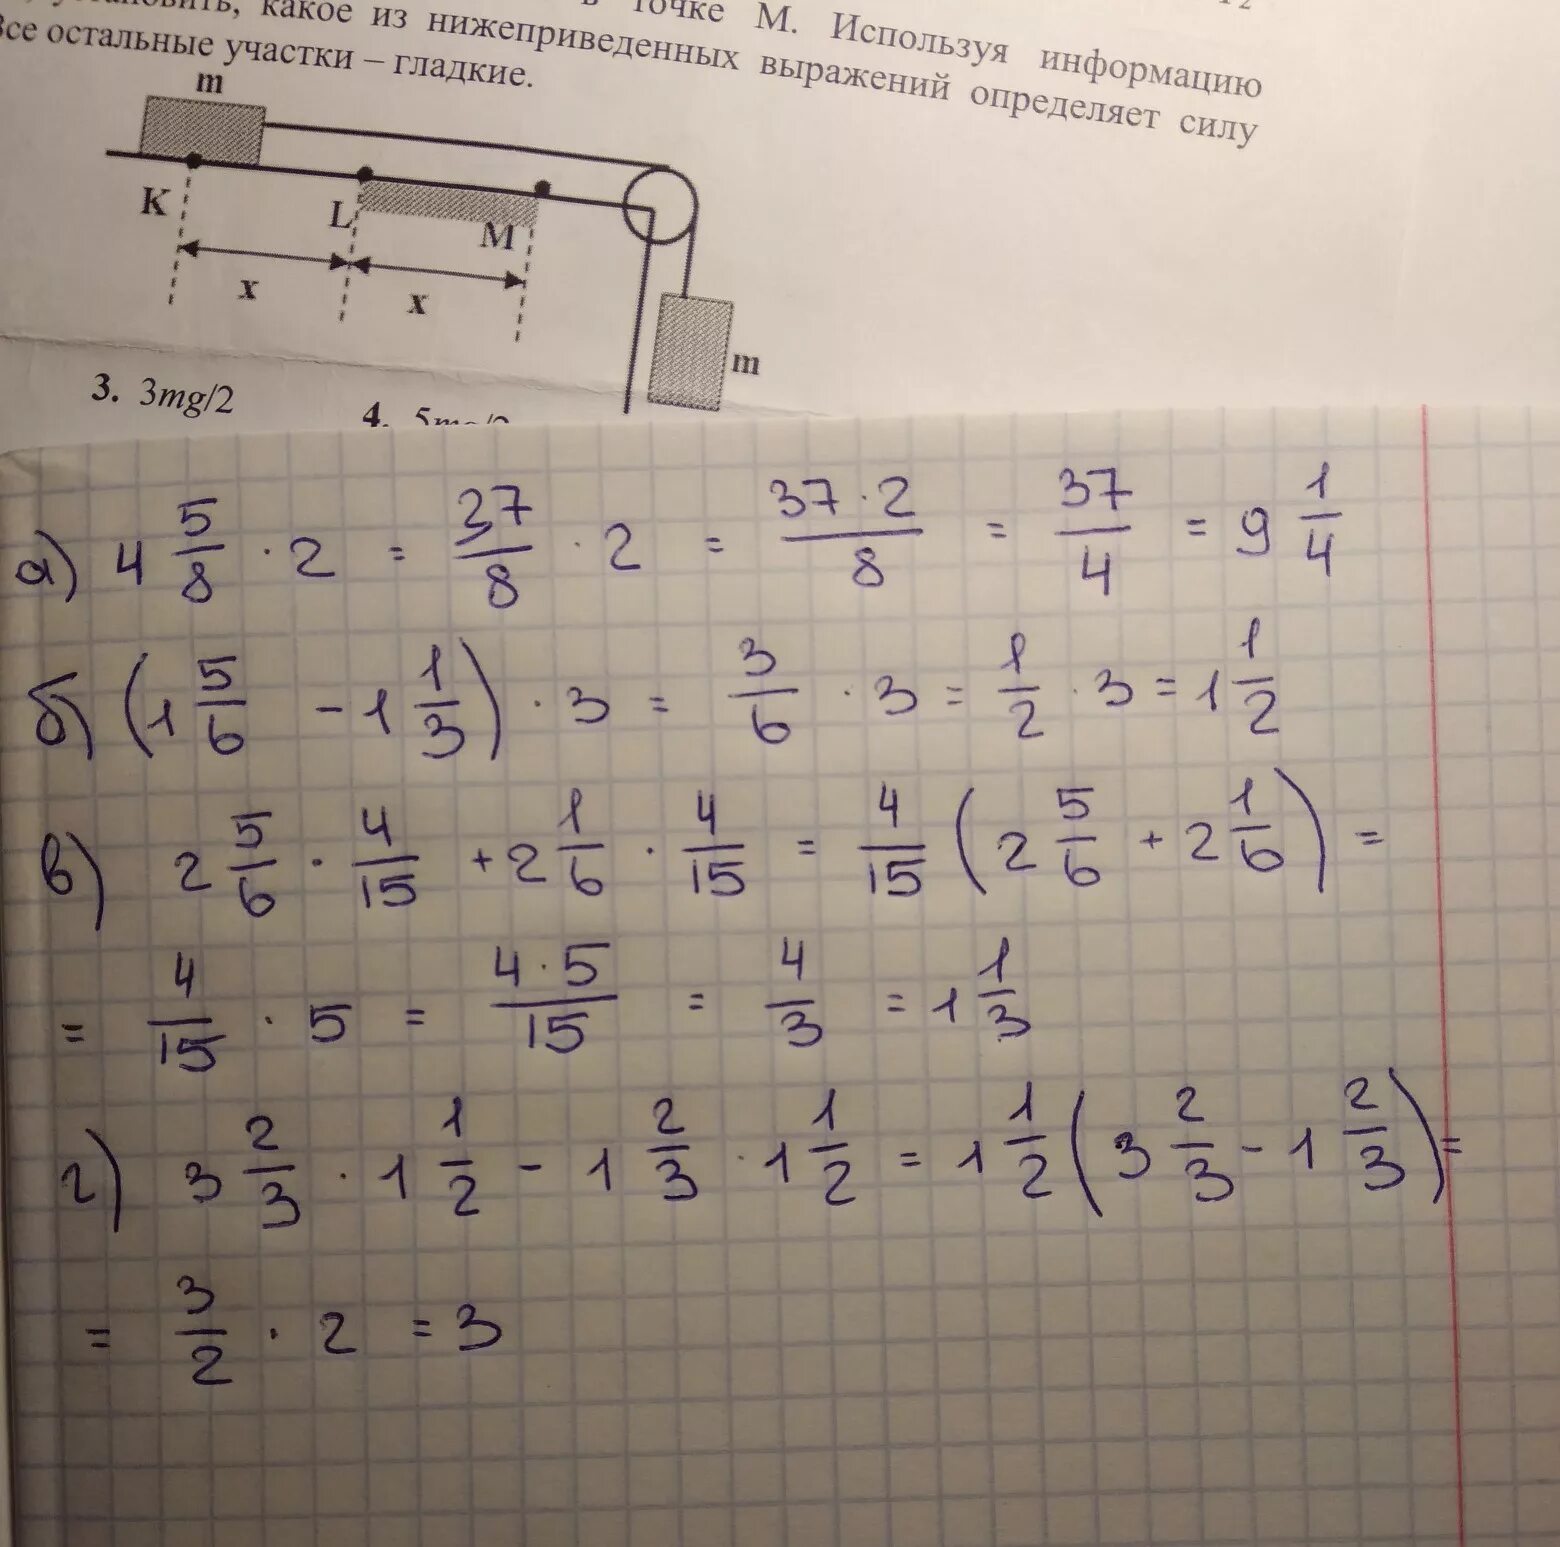 точке М. Используя информацию
какое из нижеприведенных выражений определяет силу
Все остальные участки – гладкие.
m
K
L
M
x
x
m
3. 3mg/2
4.
а) 4 5/8 · 2 = 37/8 · 2 = 37 · 2/8 = 37/4 = 9 1/4
б) (1 5/6 - 1 1/3) · 3 = 3/6 · 3 = 1/2 · 3 = 1 1/2
в) 2 5/6 · 4/15 + 2 1/6 · 4/15 = 4/15 (2 5/6 + 2 1/6) =
= 4/15 · 5 = 4 · 5/15 = 4/3 = 1 1/3
г) 3 2/3 · 1 1/2 - 1 2/3 · 1 1/2 = 1 1/2 (3 2/3 - 1 2/3) =
= 3/2 · 2 = 3